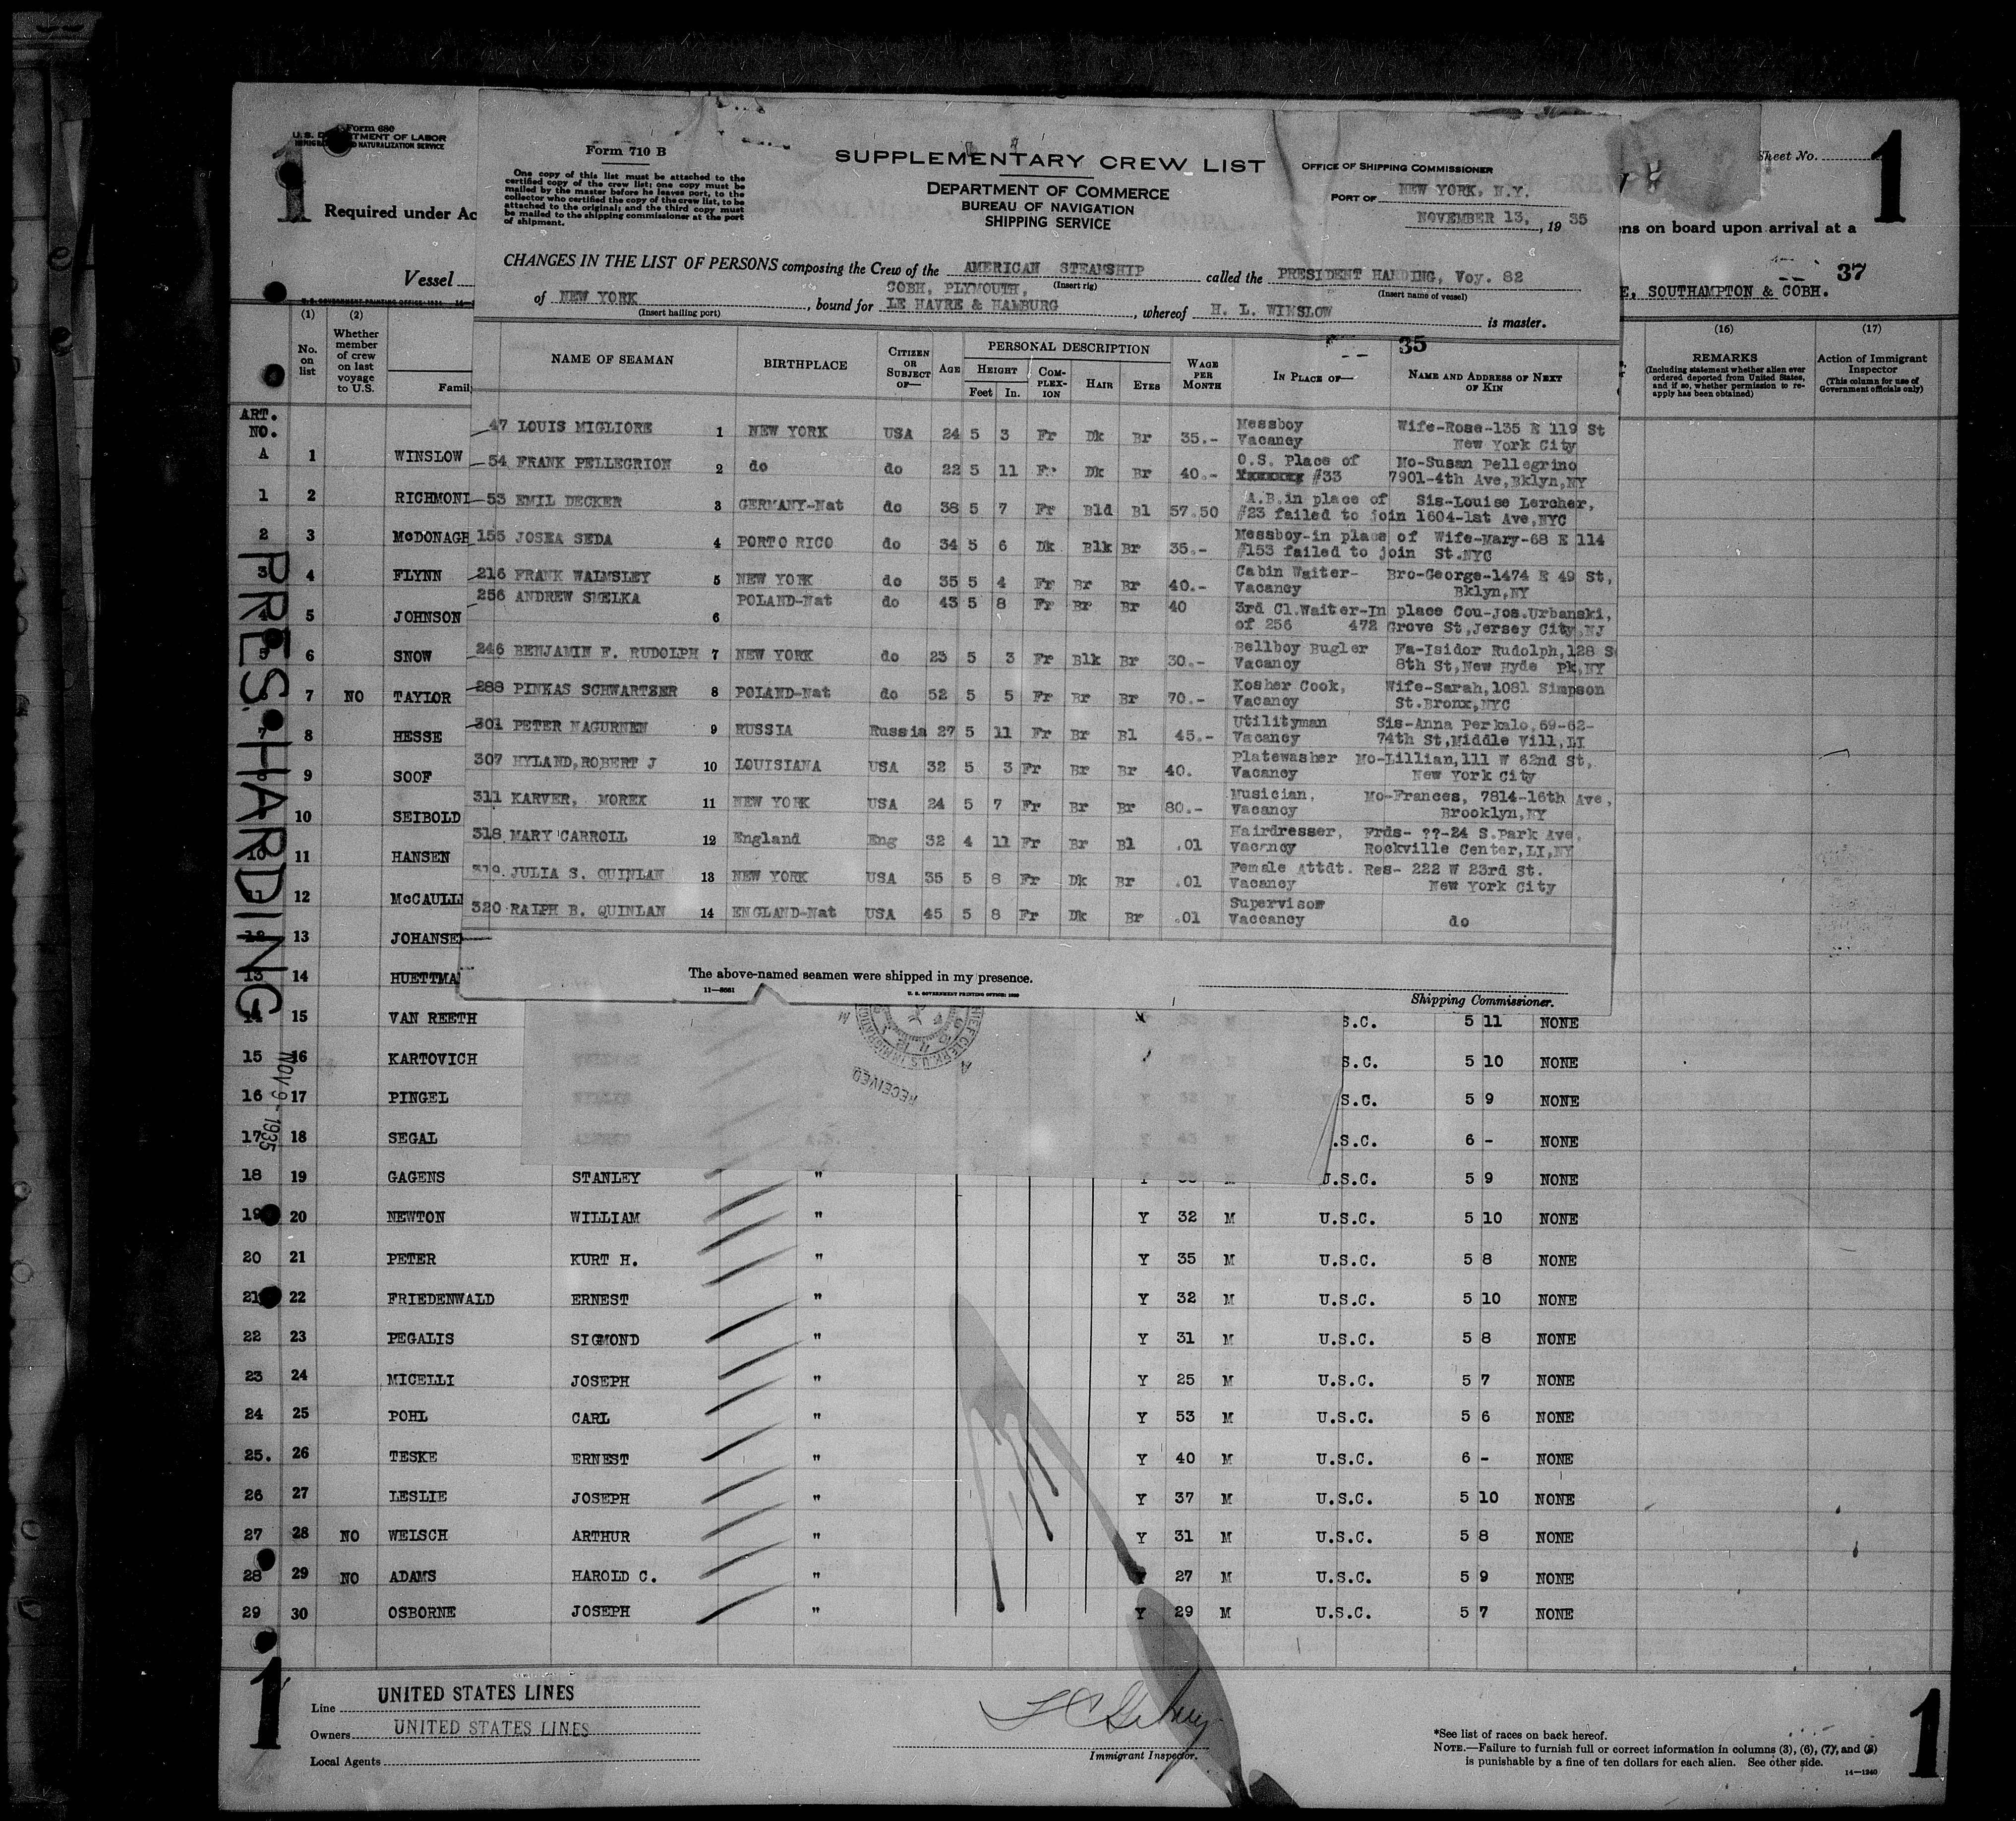 Form 680
U.S. DEPARTMENT OF LABOR
IMMIGRATION AND NATURALIZATION SERVICE
1
Required under Ac
Vessel
Sheet No.
1
ns on board upon arrival at a
37
E, SOUTHAMPTON & COBH.
Form 710 B
One copy of this list must be attached to the
certified copy of the crew list; one copy must be
mailed by the master before he leaves port, to the
collector who certified the copy of the crew list, to be
attached to the original; and the third copy must
be mailed to the shipping commissioner at the port
of shipment.
SUPPLEMENTARY CREW LIST
DEPARTMENT OF COMMERCE
BUREAU OF NAVIGATION
SHIPPING SERVICE
OFFICE OF SHIPPING COMMISSIONER
PORT OF NEW YORK, N.Y.
NOVEMBER 13, , 1935
CHANGES IN THE LIST OF PERSONS composing the Crew of the AMERICAN STEAMSHIP called the PRESIDENT HARDING, Voy. 82
(Insert rig) (Insert name of vessel)
COBH, PLYMOUTH,
of NEW YORK , bound for LE HAVRE & HAMBURG , whereof H. L. WINSLOW is master.
(Insert hailing port)
35
NAME OF SEAMAN BIRTHPLACE CITIZEN OR SUBJECT OF— AGE PERSONAL DESCRIPTION HEIGHT Feet In. COMPLEXION HAIR EYES WAGE PER MONTH IN PLACE OF— NAME AND ADDRESS OF NEXT OF KIN
47 LOUIS MIGLIORE 1 NEW YORK USA 24 5 3 Fr Dk Br 35.- Messboy Wife-Rose-135 E 119 St
Vacancy New York City
54 FRANK PELLEGRION 2 do do 22 5 11 Fr Dk Br 40.- O.S. Place of Mo-Susan Pellegrino
#33 7901-4th Ave,Bklyn,NY
53 EMIL DECKER 3 GERMANY-Nat do 38 5 7 Fr Bld Bl 57.50 A.B.in place of Sis-Louise Lercher,
#23 failed to join 1604-1st Ave,NYC
155 JOSEA SEDA 4 PORTO RICO do 34 5 6 Dk Blk Br 35.- Messboy-in place of Wife-Mary-68 E 114
#153 failed to join St.NYC
216 FRANK WALMSLEY 5 NEW YORK do 35 5 4 Fr Br Br 40.- Cabin Waiter- Bro-George-1474 E 49 St,
Vacancy Bklyn,NY
256 ANDREW SMELKA 6 POLAND-Nat do 43 5 8 Fr Br Br 40 3rd Cl.Waiter-In place Cou-Jos.Urbanski,
of 256 472 Grove St,Jersey City,NJ
246 BENJAMIN F. RUDOLPH 7 NEW YORK do 23 5 3 Fr Blk Br 30.- Bellboy Bugler Fa-Isidor Rudolph,128 S
Vacancy 8th St,New Hyde Pk,NY
288 PINKAS SCHWARTZER 8 POLAND-Nat do 52 5 5 Fr Br Br 70.- Kosher Cook, Wife-Sarah,1081 Simpson
Vacancy St.Bronx,NYC
301 PETER NAGURNEN 9 RUSSIA Russia 27 5 11 Fr Br Bl 45.- Utilityman Sis-Anna Perkalo,69-62-
Vacancy 74th St,Middle Vill,LI
307 HYLAND,ROBERT J 10 LOUISIANA USA 32 5 3 Fr Br Br 40. Platewasher Mo-Lillian,111 W 62nd St,
Vacancy New York City
311 KARVER, MOREK 11 NEW YORK USA 24 5 7 Fr Br Br 80.- Musician, Mo-Frances, 7814-16th Ave,
Vacancy Brooklyn,NY
318 MARY CARROLL 12 England Eng 32 4 11 Fr Br Bl .01 Hairdresser, Frds- ??-24 S.Park Ave,
Vacancy Rockville Center,LI,NY
319. JULIA S. QUINLAN 13 NEW YORK USA 35 5 8 Fr Dk Br .01 Female Attdt. Res- 222 W 23rd St.
Vacancy New York City
320 RALPH B. QUINLAN 14 ENGLAND-Nat USA 45 5 8 Fr Dk Br .01 Supervisor do
Vaccancy
The above-named seamen were shipped in my presence.
11—8681 U. S. GOVERNMENT PRINTING OFFICE: 1930
Shipping Commissioner.
(1) (2) (16) (17)
No. on list
Whether member of crew on last voyage to U.S.
Famil
REMARKS
(Including statement whether alien ever ordered deported from United States, and if so, whether permission to reapply has been obtained)
Action of Immigrant Inspector
(This column for use of Government officials only)
ART. NO.
A 1 WINSLOW
1 2 RICHMOND
2 3 McDONAGH
3 4 FLYNN
4 5 JOHNSON
5 6 SNOW
7 NO TAYLOR
7 8 HESSE
9 SOOF
10 SEIBOLD
10 11 HANSEN
12 McCAULL
12 13 JOHANSE
13 14 HUETTMA
14 15 VAN REETH S.C. 5 11 NONE
15 16 KARTOVICH S.C. 5 10 NONE
16 17 PINGEL S.C. 5 9 NONE
17 18 SEGAL .S.C. 6 - NONE
18 19 GAGENS STANLEY " U.S.C. 5 9 NONE
19 20 NEWTON WILLIAM " Y 32 M U.S.C. 5 10 NONE
20 21 PETER KURT H. " Y 35 M U.S.C. 5 8 NONE
21 22 FRIEDENWALD ERNEST " Y 32 M U.S.C. 5 10 NONE
22 23 PEGALIS SIGMOND " Y 31 M U.S.C. 5 8 NONE
23 24 MICELLI JOSEPH " Y 25 M U.S.C. 5 7 NONE
24 25 POHL CARL " Y 53 M U.S.C. 5 6 NONE
25. 26 TESKE ERNEST " Y 40 M U.S.C. 6 - NONE
26 27 LESLIE JOSEPH " Y 37 M U.S.C. 5 10 NONE
27 28 NO WELSCH ARTHUR " Y 31 M U.S.C. 5 8 NONE
28 29 NO ADAMS HAROLD C. " Y 27 M U.S.C. 5 9 NONE
29 30 OSBORNE JOSEPH " Y 29 M U.S.C. 5 7 NONE
PRES. HARDING
NOV 9 - 1935
RECEIVED
1
Line UNITED STATES LINES
Owners UNITED STATES LINES
Local Agents
Immigrant Inspector.
*See list of races on back hereof.
NOTE.—Failure to furnish full or correct information in columns (3), (6), (7), and (8)
is punishable by a fine of ten dollars for each alien. See other side.
14—1240
1